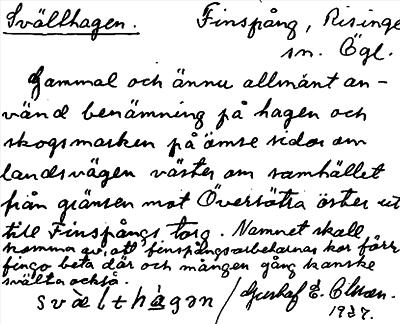 Svällhagen. Finspång, Risinge
sn. Ögl.
Gammal och ännu allmänt an-
vänd benämning på hagen och
skogsmarken på ömse sidor om
landsvägen väster om samhället
från gränsen mot Översätra öster ut
till Finspångs torg. Namnet skall
komma av, att finspångsarbetarnas kor förr
fingo beta där och mången gång kanske
svälta också.
svæ̀lthàgən / Gustaf E. Olsson.